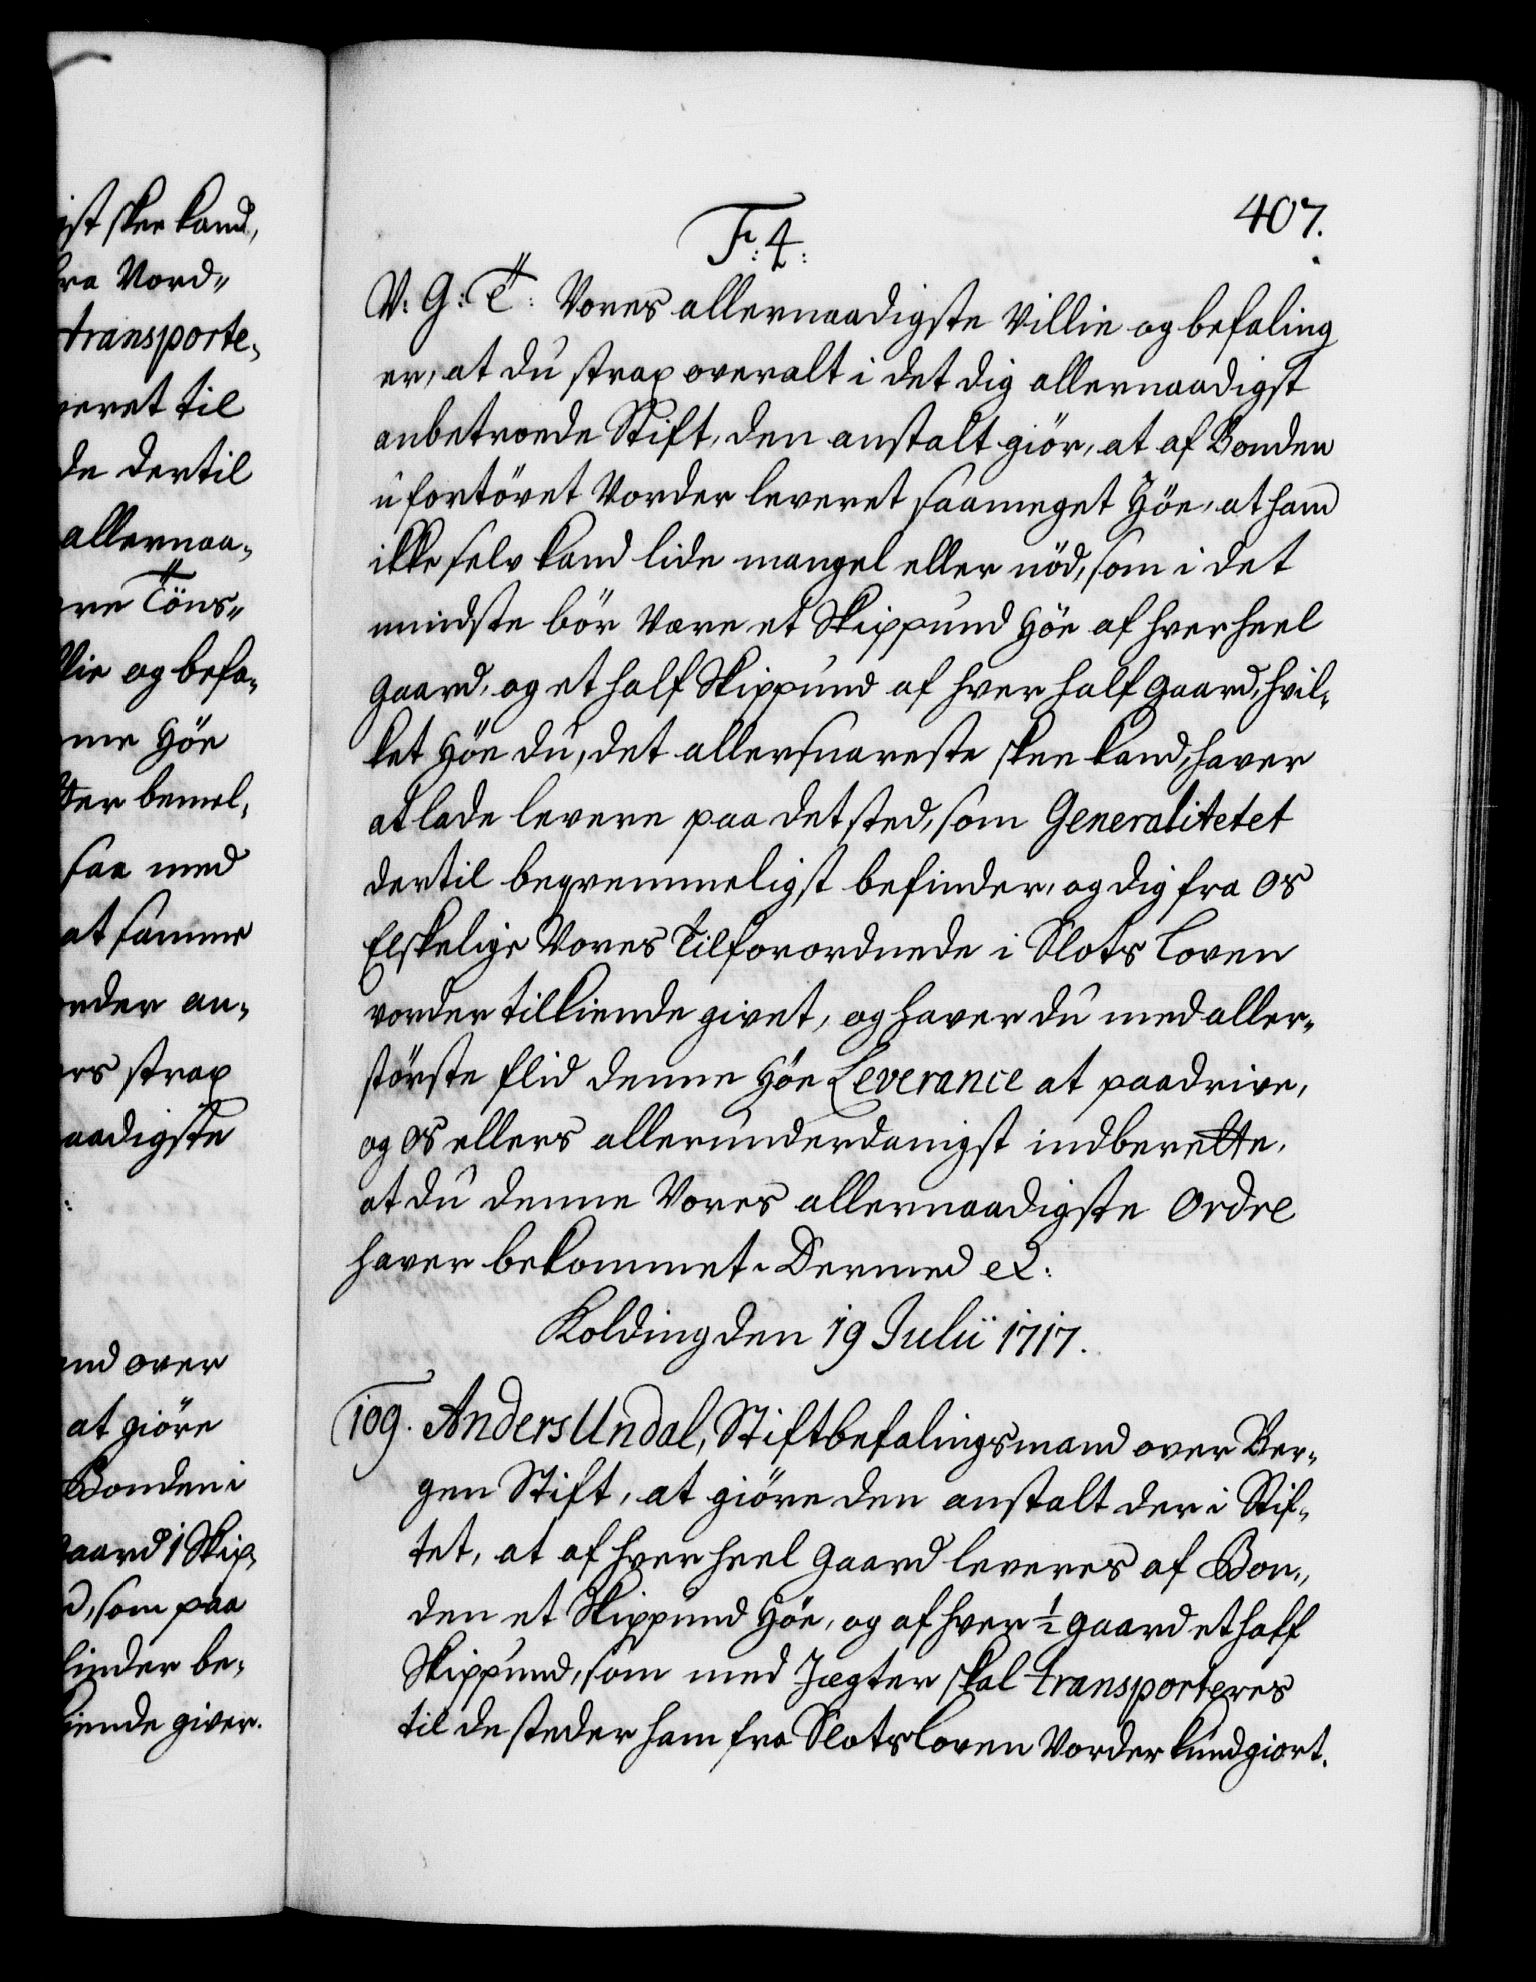 ist skee kand,
fra Vord"
transporte,
veret til
de dertil
allernaa,
Töns"
og befa,
Höe
bemel,
saa med
at samme
an,
strax
aadigste
over
at giöre
Bonden i
gaard 1 Skip,
som paa
finder be,
kiende giver.
407.
F: 4:
V: G: T: Vores allernaadigste Villie og befaling
er, at du strax overalt i det dig allernaadigst
anbetroede Stift, den anstalt giör, at af Bonden
ufortövet Vorder leveret saameget Höe, at hand
ikke selv kand lide mangel eller nöd, som i det
mindste bör Være et Skippund Höe af hver heel
gaard, og et half Skippund af hver half gaard, hvil,
ket Höe du, det allersnareste skee kand, haver
at lade levere paa det sted, som Generalitetet
dertil beqvemmeligst befinder, og dig fra os
Elskelige Vores Tilforordnede i Slots Loven
vorder tilkiende givet, og haver du med aller,
störste flid denne Höe Leverance at paadrive,
og os ellers allerunderdanigst indberette,
at du denne Vores allernaadigste Ordre
haver bekommet. Dermed &:
Kolding den 19 Julii 1717.
109. Anders Undal, Stiftbefalingsmand over Ber,
gen Stift, at giöre den anstalt der i Stif,
tet, at af hver heel gaard leveres af Bon,
den et Skippund Höe, og af hver ½ gaard et half
Skippund, som med Jægter skal transporteres
til de steder ham fra Slotsloven Vorder kundgiort.